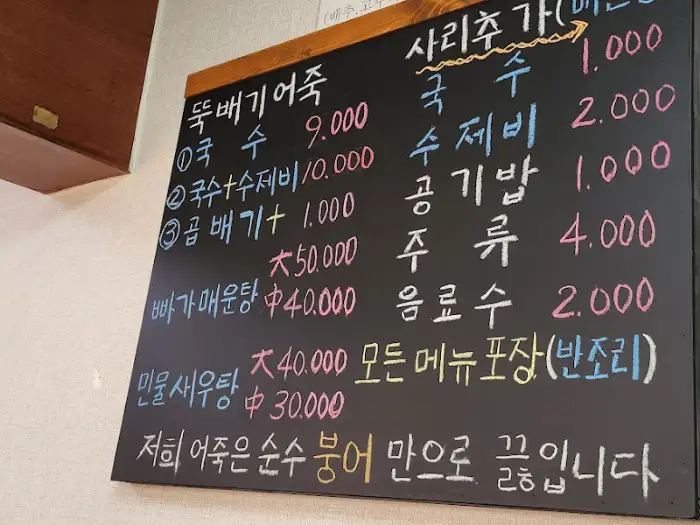 뚝배기어죽
①국 수 9.000
②국수+수제비 10.000
③곱배기+ 1.000
大 50.000
빠가매운탕 中 40.000
大 40.000
민물새우탕 中 30.000
사리추가(매운탕
국 수 1.000
수제비 2.000
공기밥 1.000
주 류 4.000
음료수 2.000
모든메뉴포장(반조리)
저희 어죽은 순수 붕어 만으로 끓입니다